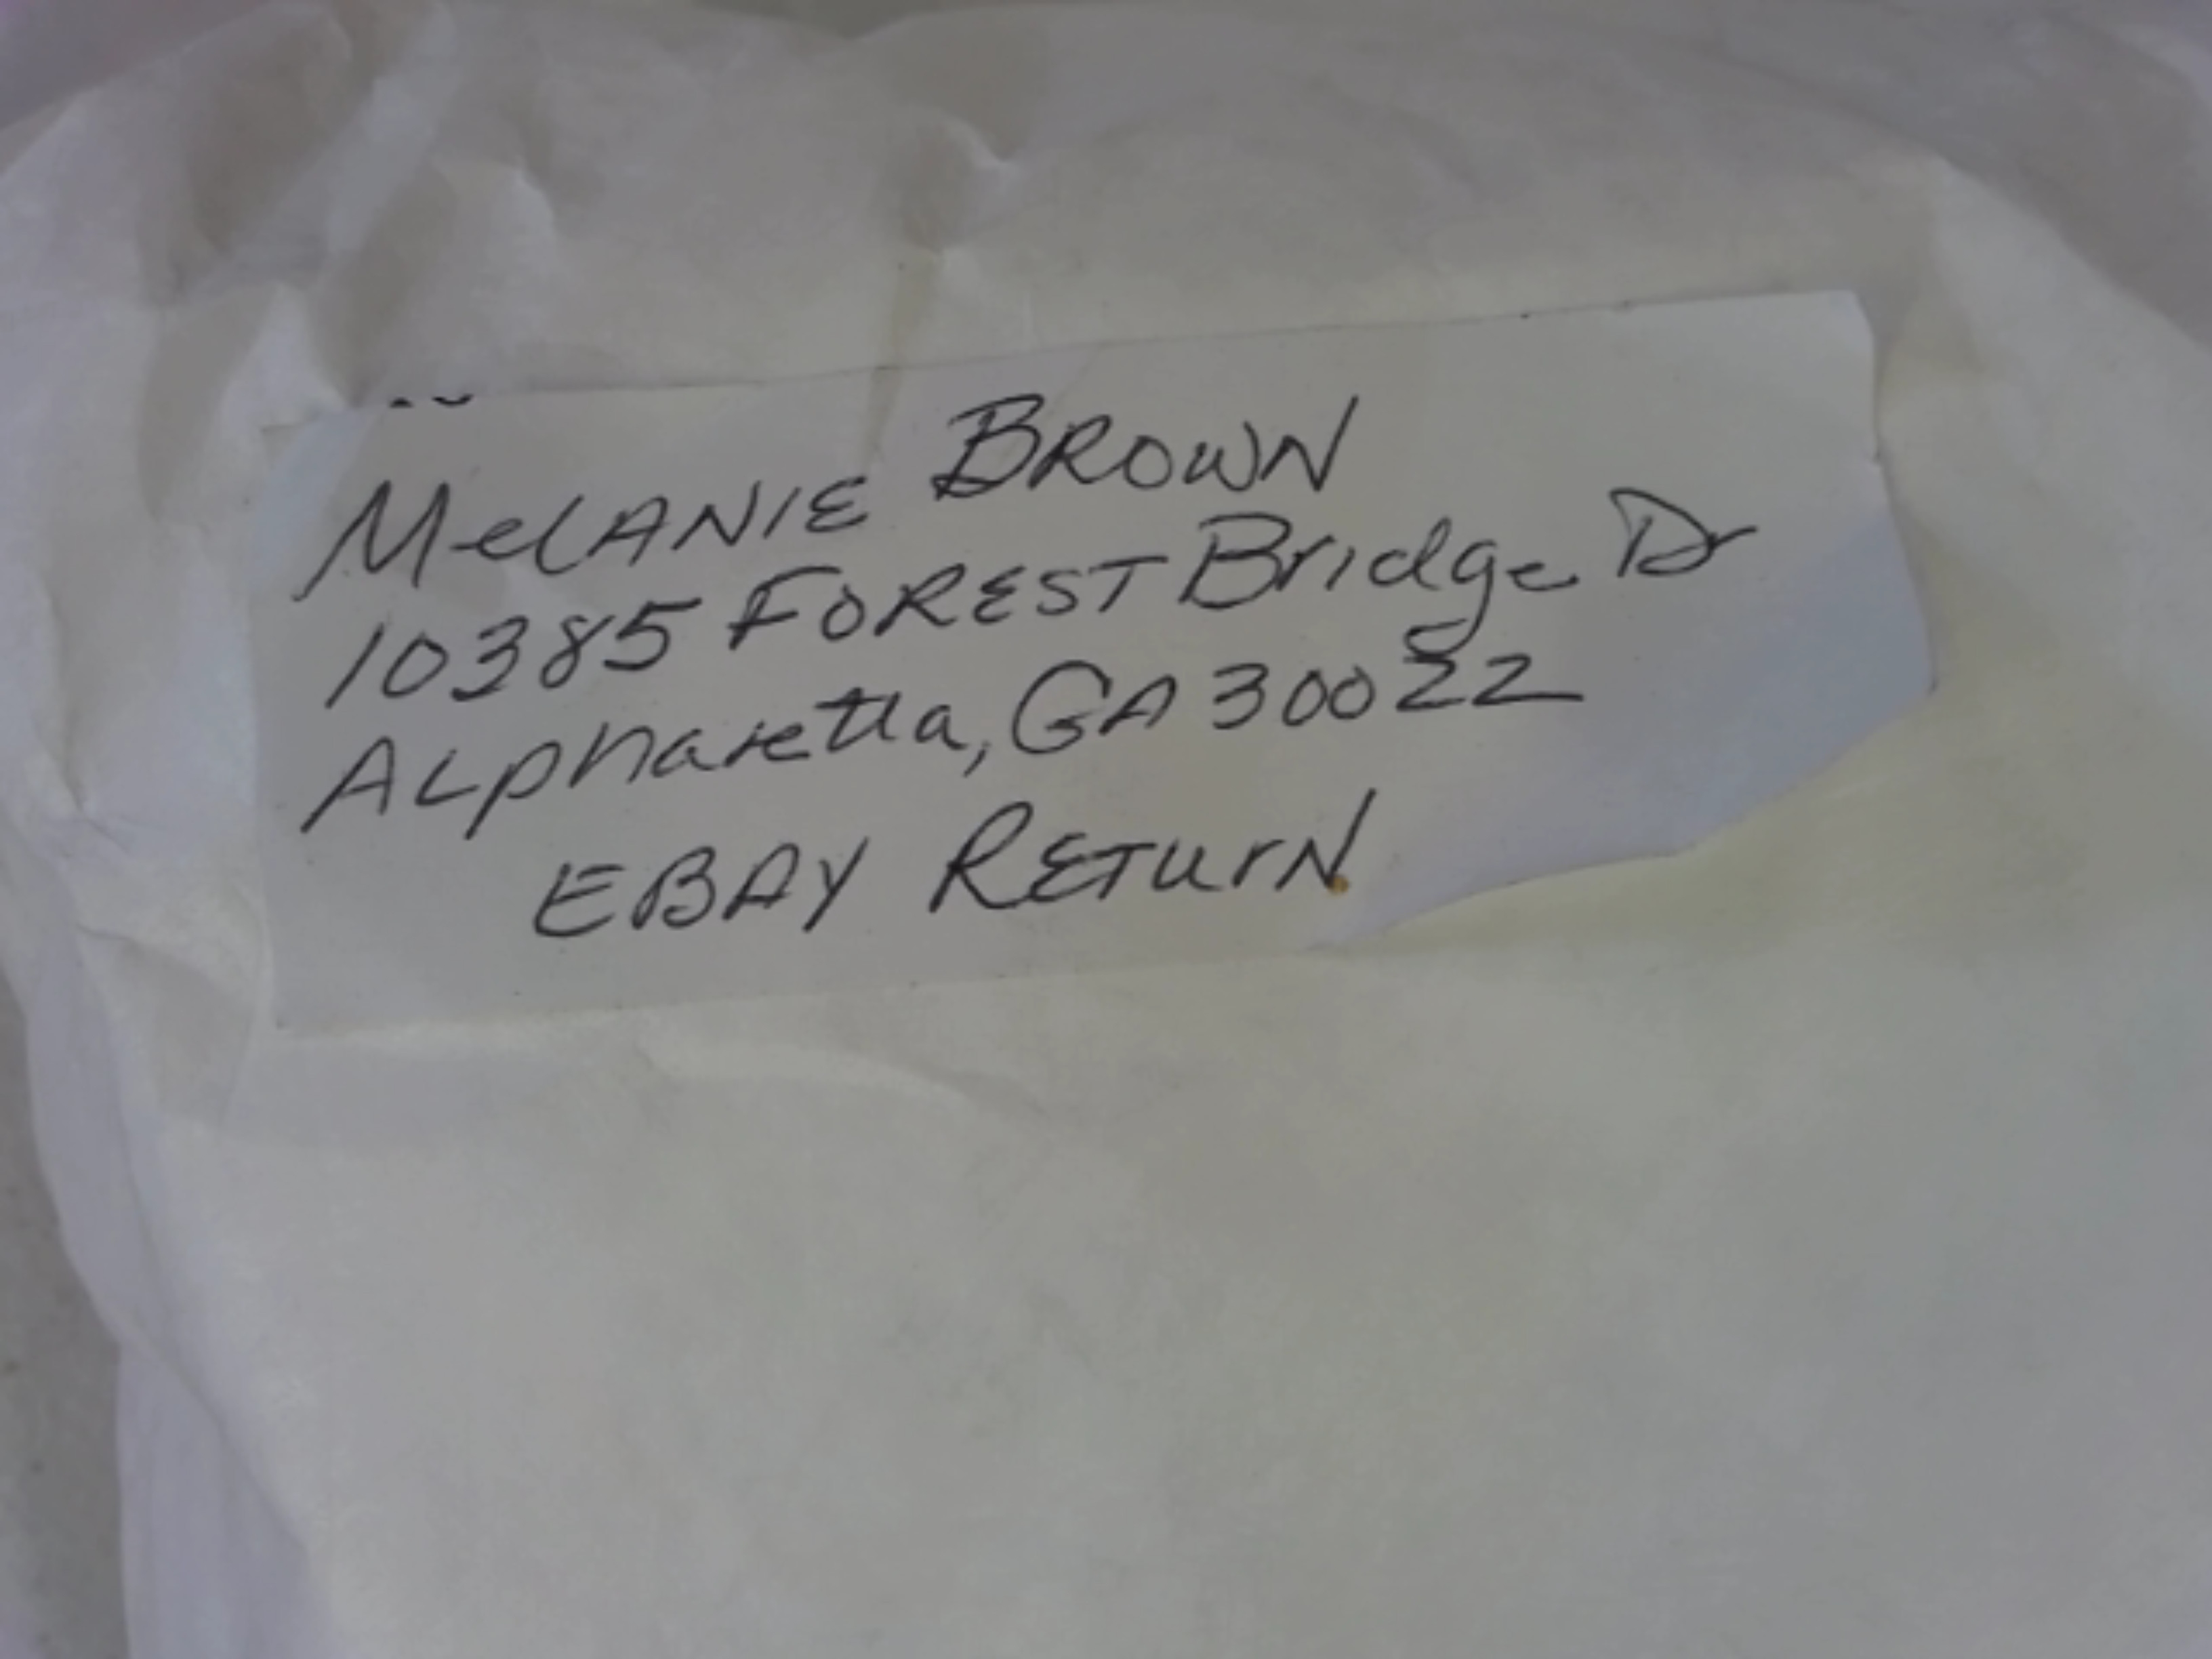 MelANIE BROWN
10385 FOREST Bridge Dr
ALpharetta, GA 30022
EBAY RETUrN